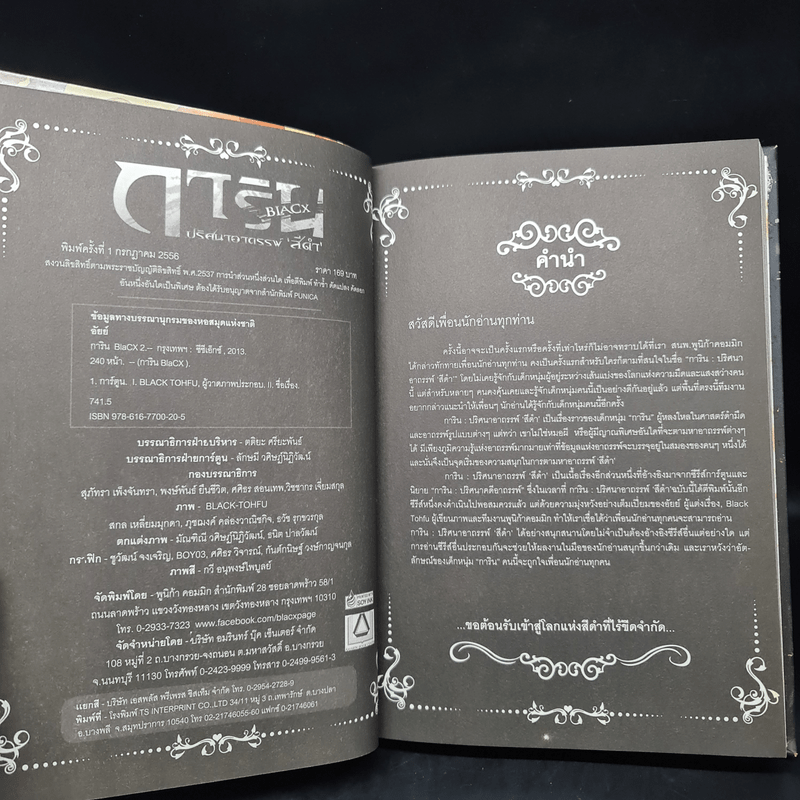 การิน
BLACX
ปริศนาอาถรรพ์ 'สีดำ'
พิมพ์ครั้งที่ 1 กรกฎาคม 2556
ราคา 169 บาท
สงวนลิขสิทธิ์ตามพระราชบัญญัติลิขสิทธิ์ พ.ศ.2537 การนำส่วนหนึ่งส่วนใด เพื่อตีพิมพ์ ทำซ้ำ ดัดแปลง คัดลอก
อันหนึ่งอันใดเป็นพิเศษ ต้องได้รับอนุญาตจากสำนักพิมพ์ PUNICA
ข้อมูลทางบรรณานุกรมของหอสมุดแห่งชาติ
อัยย์
การิน BlaCX 2.-- กรุงเทพฯ : ซีซีเอ็กซ์, 2013.
240 หน้า. -- (การิน BlaCX ).
1. การ์ตูน. I. BLACK TOHFU, ผู้วาดภาพประกอบ. II. ชื่อเรื่อง.
741.5
ISBN 978-616-7700-20-5
บรรณาธิการฝ่ายบริหาร - ตติยะ ศรียะพันธ์
บรรณาธิการฝ่ายการ์ตูน - ลักษมี วศิษฎ์นิฎิวัฒน์
กองบรรณาธิการ
สุภัทรา เพ็งจันทรา, พงษ์พันธ์ ยืนชีวิต, ศศิธร สอนเทพ,วิชชากร เจี่ยมสกุล
ภาพ - BLACK-TOHFU
สกล เหลี่ยมมุกดา, ภูชฌงค์ คล่องวาณิชกิจ, ธวัช รุกขวรกุล
ตกแต่งภาพ - มัณฑิณี วศิษฎ์นิฎิวัฒน์, ธนิต ปาลวัฒน์
กราฟิก - ชูวัฒน์ จงเจริญ, BOY03, ศศิธร วิจารณ์, กันต์กนิษฐ์ วงษ์กาญจนกุล
ภาพสี - กวี อนุพงษ์ไพบูลย์
จัดพิมพ์โดย - พูนิก้า คอมมิก สำนักพิมพ์ 28 ซอยลาดพร้าว 58/1
ถนนลาดพร้าว แขวงวังทองหลาง เขตวังทองหลาง กรุงเทพฯ 10310
โทร. 0-2933-7323 www.facebook.com/blacxpage
จัดจำหน่ายโดย - บริษัท อมรินทร์ บุ๊ค เซ็นเตอร์ จำกัด
108 หมู่ที่ 2 ถ.บางกรวย-จงถนอม ต.มหาสวัสดิ์ อ.บางกรวย
จ.นนทบุรี 11130 โทรศัพท์ 0-2423-9999 โทรสาร 0-2499-9561-3
แยกสี - บริษัท เอสพลัส พรีเพรส ซิสเท็ม จำกัด โทร. 0-2954-2728-9
พิมพ์ที่ - โรงพิมพ์ TS INTERPRINT CO.,LTD 34/11 หมู่ 3 ถ.เทพารักษ์ ต.บางปลา
อ.บางพลี จ.สมุทรปราการ 10540 โทร 02-21746055-60 แฟกซ์ 0-21746061
SOY INK
คำนำ
สวัสดีเพื่อนนักอ่านทุกท่าน
ครั้งนี้อาจจะเป็นครั้งแรกหรือครั้งที่เท่าไหร่ก็ไม่อาจทราบได้ที่เรา สนพ.พูนิก้าคอมมิก
ได้กล่าวทักทายเพื่อนนักอ่านทุกท่าน คงเป็นครั้งแรกสำหรับใครก็ตามที่สนใจในชื่อ "การิน : ปริศนา
อาถรรพ์ 'สีดำ'" โดยไม่เคยรู้จักกับเด็กหนุ่มผู้อยู่ระหว่างเส้นแบ่งของโลกแห่งความมืดและแสงสว่างคน
นี้ แต่สำหรับหลายๆ คนคงคุ้นเคยและรู้จักกับเด็กหนุ่มคนนี้เป็นอย่างดีกันอยู่แล้ว แต่พื้นที่ตรงนี้ทีมงาน
อยากกล่าวแนะนำให้เพื่อนๆ นักอ่านได้รู้จักกับเด็กหนุ่มคนนี้อีกครั้ง
การิน : ปริศนาอาถรรพ์ 'สีดำ' เป็นเรื่องราวของเด็กหนุ่ม "การิน" ผู้หลงใหลในศาสตร์ดำมืด
และอาถรรพ์รูปแบบต่างๆ แต่ทว่า เขาไม่ใช่หมอผี หรือผู้มีญาณพิเศษอันใดที่จะตามหาอาถรรพ์ต่างๆ
ได้ มีเพียงภูมิความรู้แห่งอาถรรพ์มากมายเท่าที่ข้อมูลแห่งอาถรรพ์จะบรรจุอยู่ในสมองของคนๆ หนึ่งได้
และนั่นจึงเป็นจุดเริ่มของความสนุกในการตามหาอาถรรพ์ 'สีดำ'
การิน : ปริศนาอาถรรพ์ 'สีดำ' เป็นเนื้อเรื่องอีกส่วนหนึ่งที่อ้างอิงมาจากซีรีส์การ์ตูนและ
นิยาย "การิน : ปริศนาคดีอาถรรพ์" ซึ่งในเวลาที่ การิน : ปริศนาอาถรรพ์ 'สีดำ'ฉบับนี้ได้ตีพิมพ์นั้นอีก
ซีรีส์หนึ่งคงดำเนินไปพอสมควรแล้ว แต่ด้วยความมุ่งหวังอย่างเต็มเปี่ยมของอัยย์ ผู้แต่งเรื่อง, Black
Tohfu ผู้เขียนภาพและทีมงานพูนิก้าคอมมิก ทำให้เราเชื่อได้ว่าเพื่อนนักอ่านทุกคนจะสามารถอ่าน
การิน : ปริศนาอาถรรพ์ 'สีดำ' ได้อย่างสนุกสนานโดยไม่จำเป็นต้องอ้างอิงซีรีส์อื่นแต่อย่างใด แต่
การอ่านซีรีส์อื่นประกอบกันจะช่วยให้ผลงานในมือของนักอ่านสนุกขึ้นกว่าเดิม และเราหวังว่าอัต-
ลักษณ์ของเด็กหนุ่ม "การิน" คนนี้จะถูกใจเพื่อนนักอ่านทุกคน
...ขอต้อนรับเข้าสู่โลกแห่งสีดำที่ไร้ขีดจำกัด...